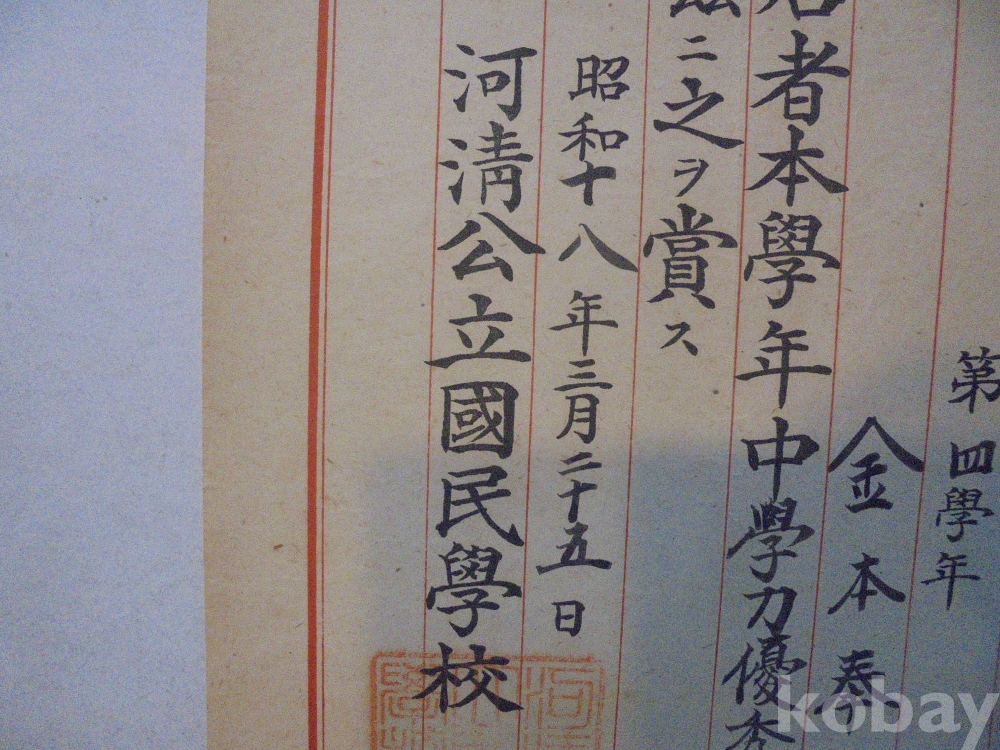 第四學年
金本奉
者本學年中學力優秀
ニ之ヲ賞ス
昭和十八年三月二十五日
河淸公立國民學校
kobay